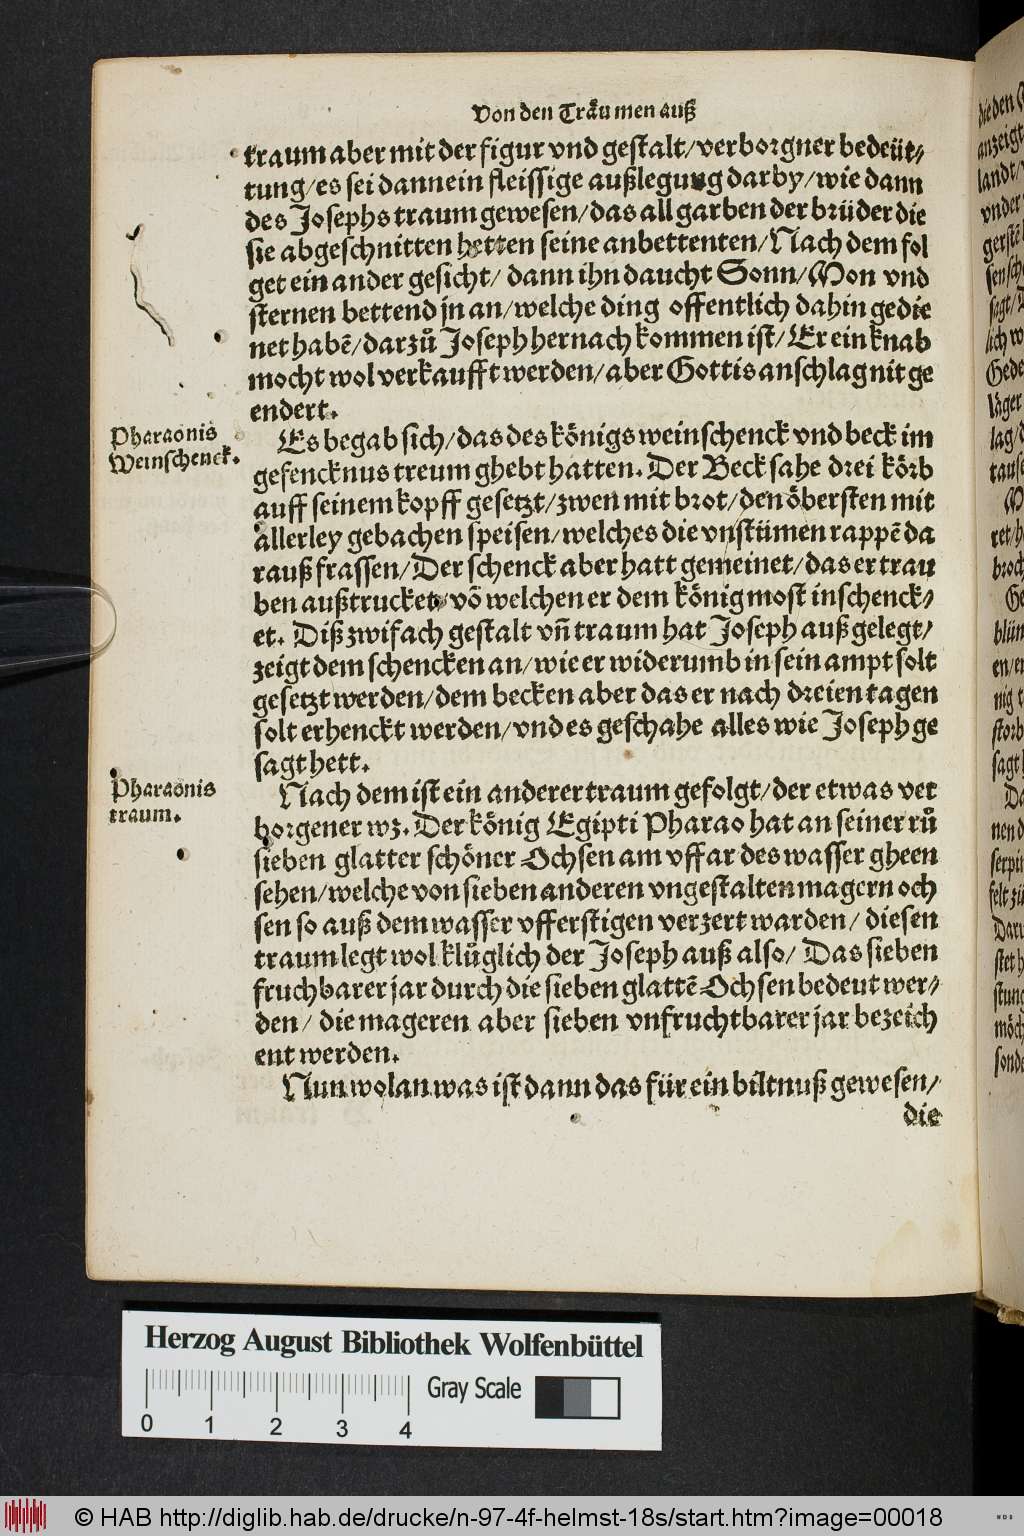 Von den Träumen auß
traum aber mit der figur vnd gestalt/verborgner bedeüt-/
tung/es sei dann ein fleissige außlegung darby/wie dann
des Josephs traum gewesen/das all garben der brüder die
sie abgeschnitten hetten seine anbettenten/Nach dem fol
get ein ander gesicht/ dann ihn daucht Sonn/Mon vnd
sternen bettend jn an/welche ding offentlich dahin gedie
net habē/darzů Joseph hernach kommen ist/Er ein knab
mocht wol verkaufft werden/aber Gottis anschlag nit ge
endert.
Pharaonis
Weinschenck.
Es begab sich/das des königs weinschenck vnd beck im
gefencknus treum ghebt hatten. Der Beck sahe drei körb
auff seinem kopff gesetzt/zwen mit brot/den öbersten mit
allerley gebachen speisen/welches die vnstümen rappē da
rauß frassen/Der schenck aber hatt gemeinet/das er trau
ben außtrucket/vō welchen er dem könig most inschenck/
et. Diß zwifach gestalt vñ traum hat Joseph auß gelegt/
zeigt dem schencken an/wie er widerumb in sein ampt solt
gesetzt werden/dem becken aber das er nach dreien tagen
solt erhenckt werden/vnd es geschahe alles wie Joseph ge
sagt hett.
Pharaonis
traum.
Nach dem ist ein anderer traum gefolgt/der etwas ver
borgener wz. Der könig Egipti Pharao hat an seiner rů
sieben glatter schöner Ochsen am vffar des wasser gheen
sehen/welche von sieben anderen vngestalten magern och
sen so auß dem wasser vfferstigen verzert warden/ diesen
traum legt wol klüglich der Joseph auß also/ Das sieben
fruchbarer jar durch die sieben glattē Ochsen bedeut wer/
den/ die mageren aber sieben vnfruchtbarer jar bezeich
ent werden.
Nun wolan was ist dann das für ein biltnuß gewesen/
die
Herzog August Bibliothek Wolfenbüttel
Gray Scale
0 1 2 3 4
© HAB http://diglib.hab.de/drucke/n-97-4f-helmst-18s/start.htm?image=00018